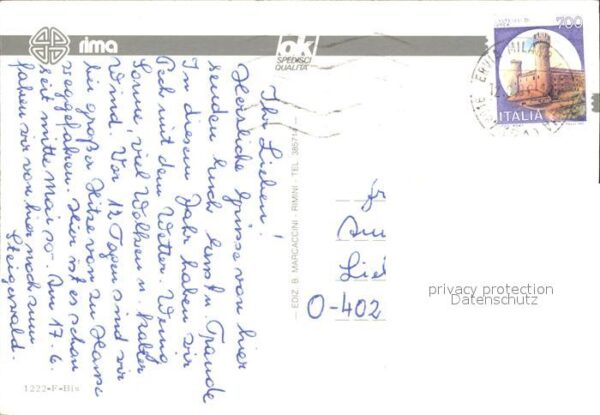 rima
ok
SPEDISCI
QUALITÀ
700
ITALIA
MILA
Ihr Lieben!
Herzliche Grüsse von hier
senden Euch Ernst u. Traude
In diesem Jahr haben wir
Pech mit dem Wetter. Wenig
Sonne, viel Wolken u. kalter
Wind. Vor 12 Tagen sind wir
bei großer Hitze von zu Hause
weggefahren. Hier ist es schon
seit mitte Mai so. Am 17.6.
fahren wir von hier noch zum
Steigerwald.
EDIZ. B. MARCACCINI - RIMINI - TEL.
Am
O-402
privacy protection
Datenschutz
1222-F-Bix